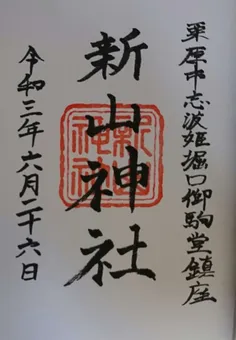 栗原市志波姫堀口御駒堂鎮座
新山神社
令和三年六月二十六日
新山神社